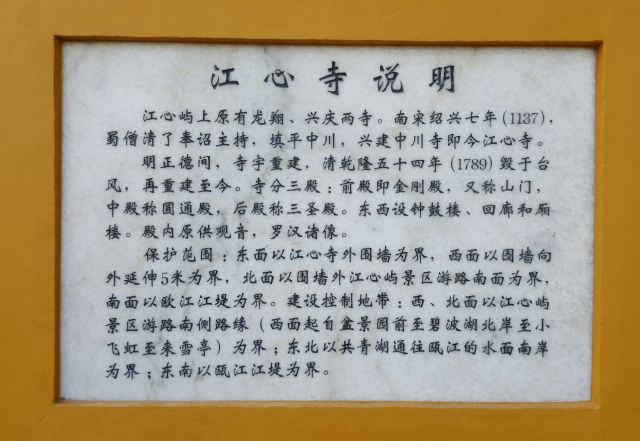 江心寺说明
江心屿上原有龙翔、兴庆两寺。南宋绍兴七年(1137),
蜀僧清了奉诏主持,填平中川,兴建中川寺即今江心寺。
明正德间,寺宇重建,清乾隆五十四年(1789)毁于台
风,再重建至今。寺分三殿:前殿即金刚殿,又称山门,
中殿称圆通殿,后殿称三圣殿。东西设钟鼓楼、回廊和厢
楼。殿内原供观音,罗汉诸像。
保护范围:东面以江心寺外围墙为界,西面以围墙向
外延伸5米为界,北面以围墙外江心屿景区游路南面为界,
南面以欧江江堤为界。建设控制地带:西、北面以江心屿
景区游路南侧路缘(西面起自盆景园前至碧波湖北岸至小
飞虹至来雪亭)为界;东北以共青湖通往瓯江的水面南岸
为界;东南以瓯江江堤为界。